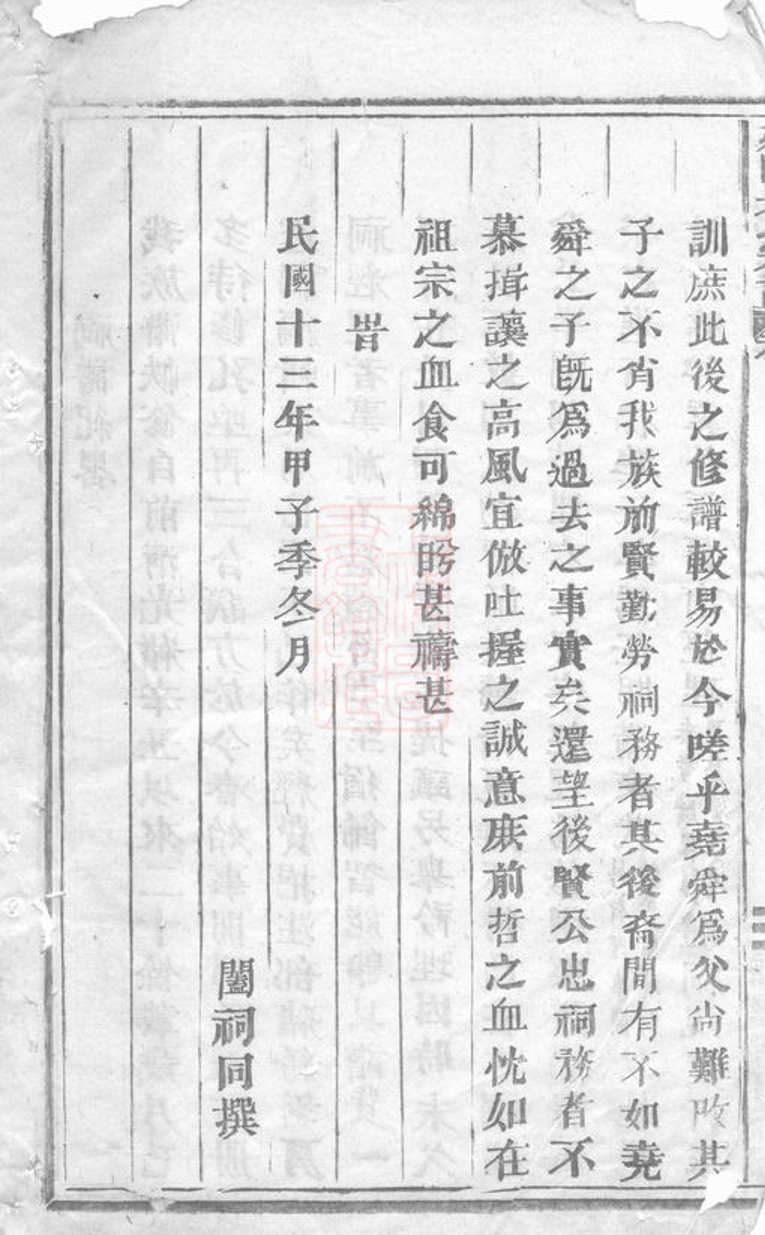 訓庶此後之修譜較易於今嗟乎堯舜爲父尚難改其
子之不肖我族前賢勤勞祠務者其後裔間有不如堯
舜之子既爲過去之事實矣還望後賢公忠祠務者不
慕揖讓之高風宜倣吐握之誠意庶前哲之血忱如在
祖宗之血食可綿盼甚禱甚
旹
民國十三年甲子季冬月
闔祠同撰